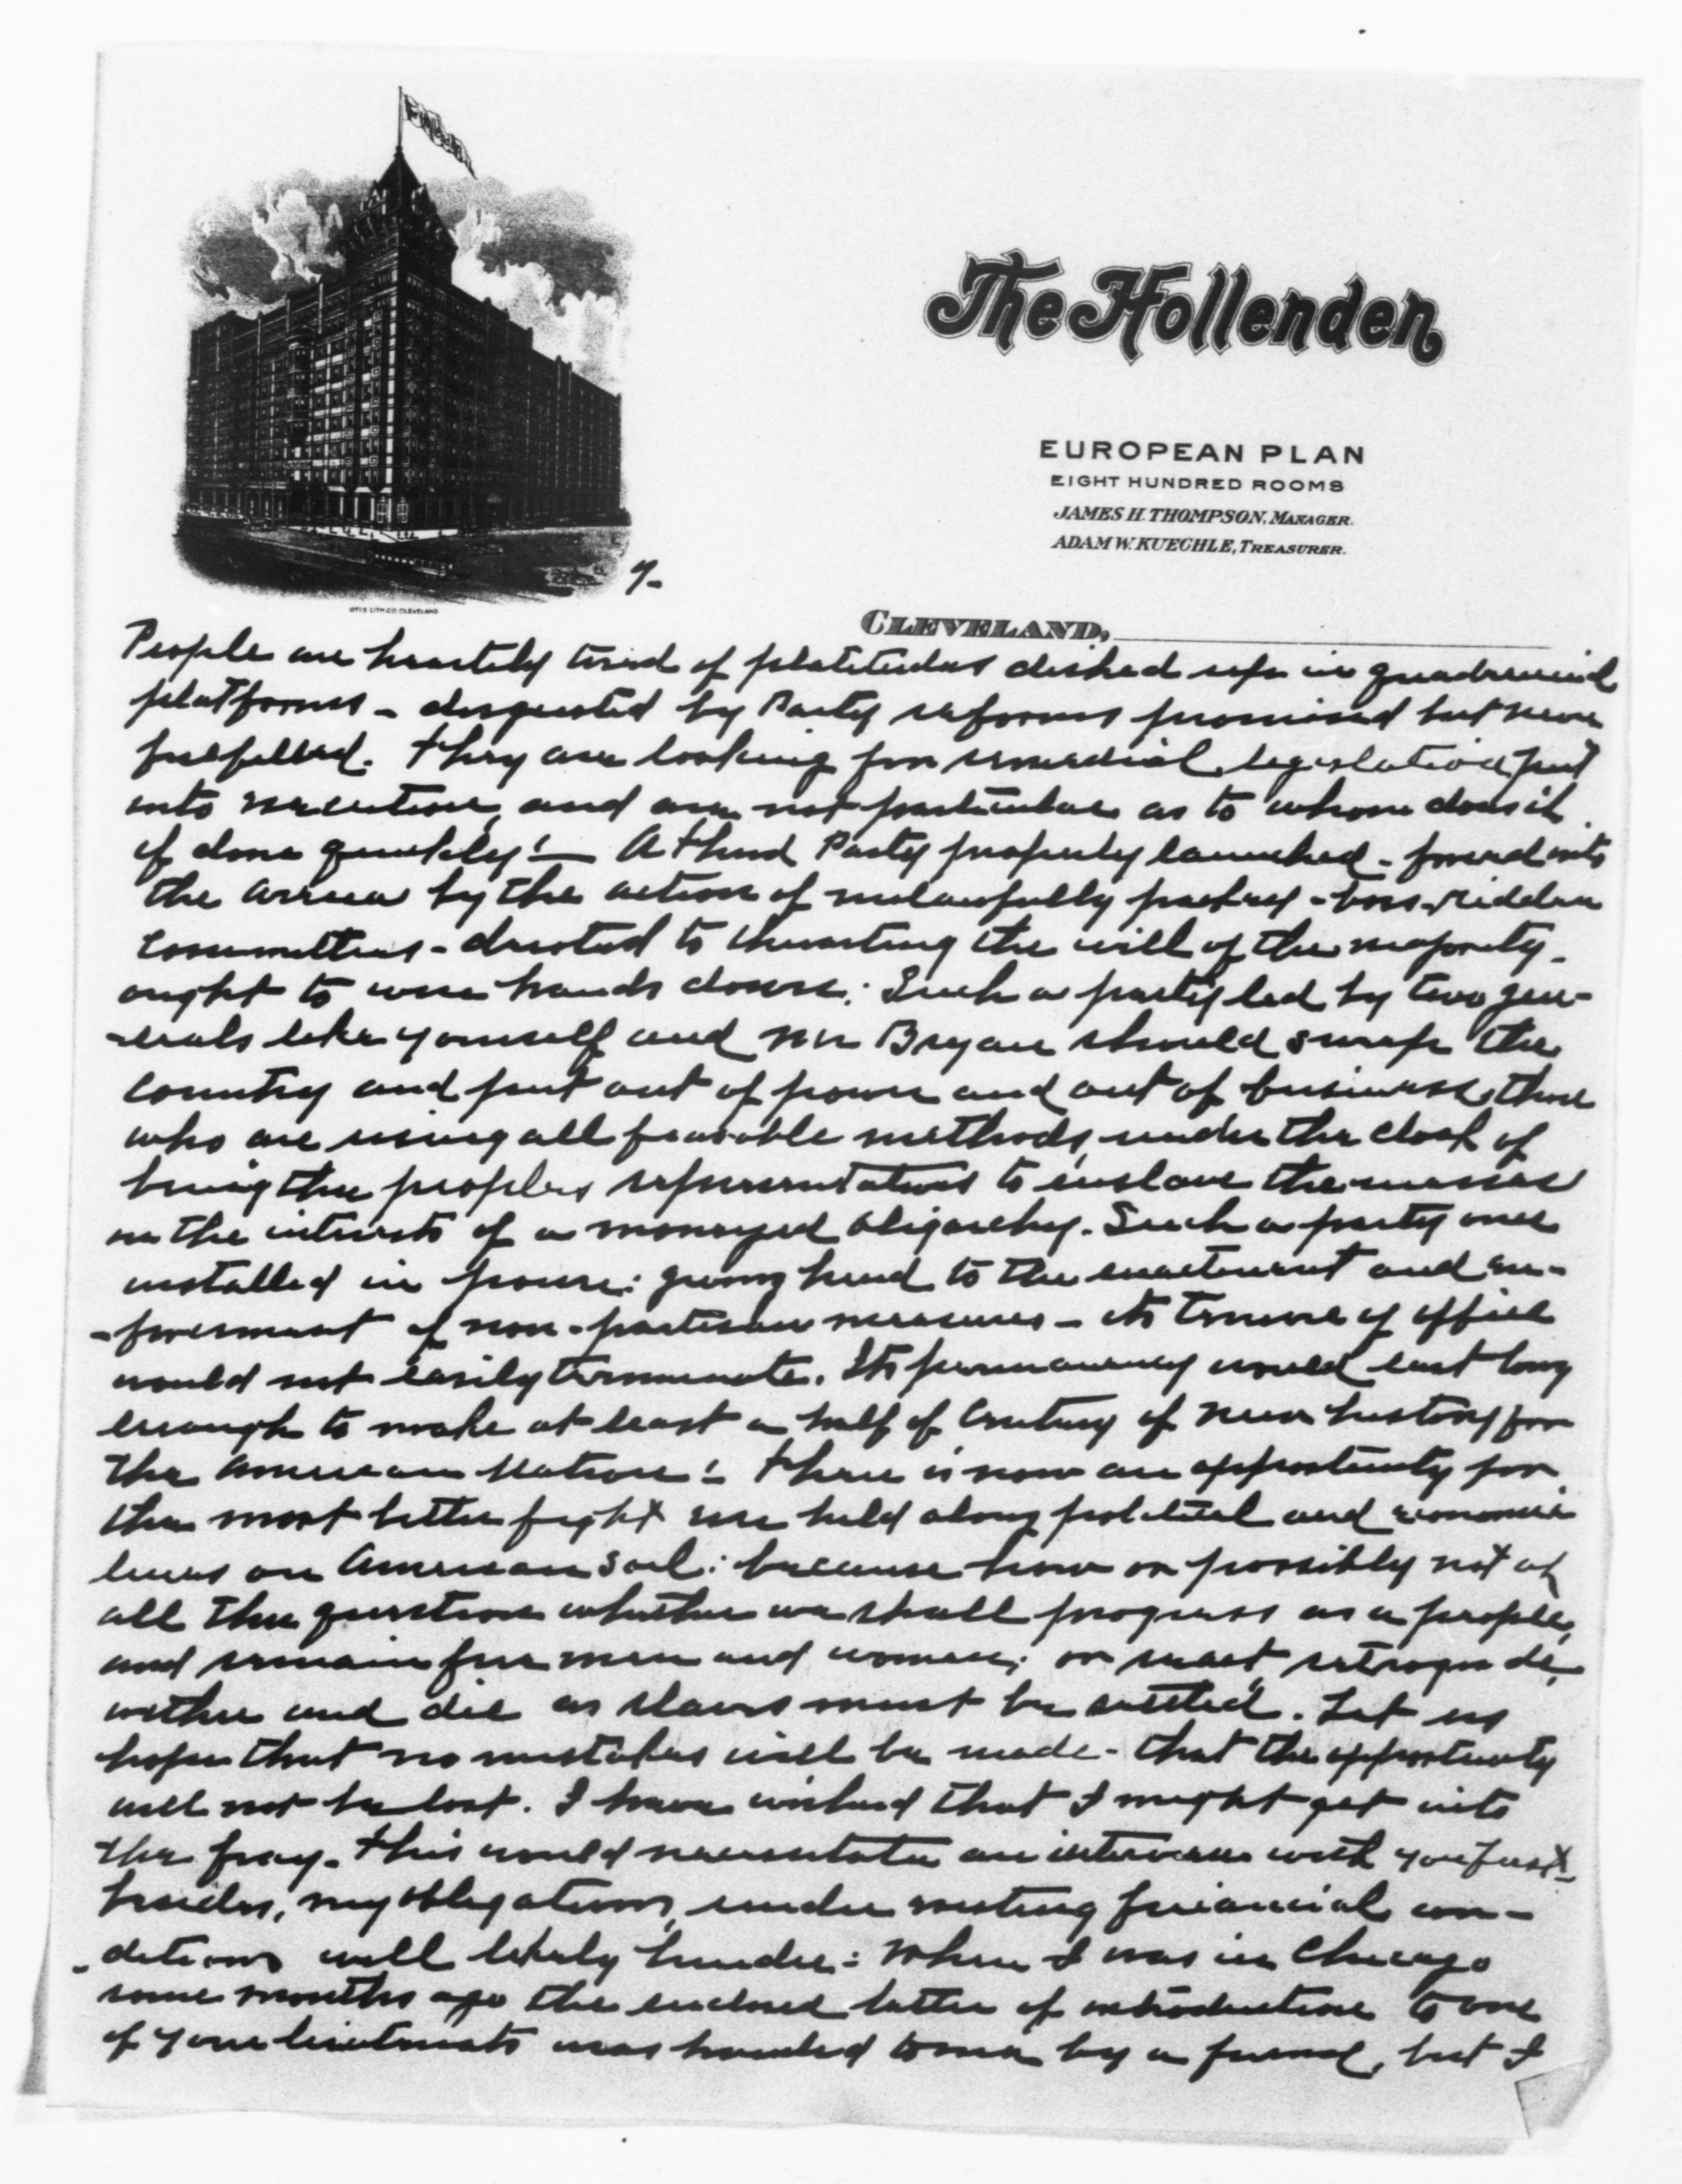 The Hollenden
EUROPEAN PLAN
EIGHT HUNDRED ROOMS
JAMES H. THOMPSON, MANAGER.
ADAM W. KUECHLE, TREASURER.
OTIS LITH. CO. CLEVELAND
7-
CLEVELAND,
People are heartily tired of platitudes dished up in quadrennial
platforms - disgusted by Party reforms promised but never
fulfilled. They are looking for remedial legislation put
into execution, and are not particular as to whom does it
if done quickly! - A third Party properly launched - forced into
the arena by the action of unlawfully packed - boss-ridden
committees - devoted to thwarting the will of the majority -
ought to win hands down: Such a party led by two gen-
-erals like yourself and Mr Bryan should sweep the
country and put out of power and out of business, those
who are using all favorable methods, under the cloak of
being the peoples representatives to enslave the masses
in the interests of a moneyed oligarchy. Such a party once
installed in power: giving heed to the enactment and en-
-forcement of non-partisan measures - its tenure of office
would not easily terminate. Its permanency would last long
enough to make at least a half of Century of new history for
the American Nation! There is now an opportunity for
the most bitter fight ever held along political and economic
lines on American soil: because now or possibly not at
all the question whether we shall progress as a people,
and remain free men and women; or react, retrograde,
wither and die as slaves must be settled. Let us
hope that no mistakes will be made - that the opportunity
will not be lost. I have wished that I might get into
the fray. This would necessitate an interview with you first -
besides, my obligations, under existing financial con-
-ditions will likely hinder: When I was in Chicago
some months ago the enclosed letter of introduction to one
of your lieutenants was handed to me by a friend, but I